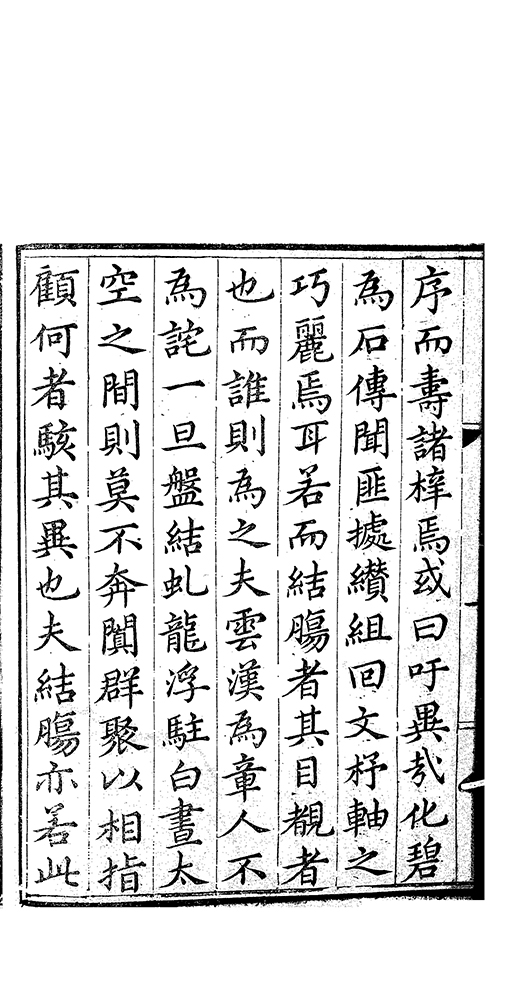 序而壽諸梓焉或曰吁異哉化碧
為石傳聞匪摅纘組回文杼軸之
巧麗焉耳若而結腸者其目覩者
也而誰則為之夫雲漢為章人不
為詫一旦盤結虬龍浮駐白晝太
空之間則莫不奔闐群聚以相指
顧何者駭其異也夫結腸亦若此